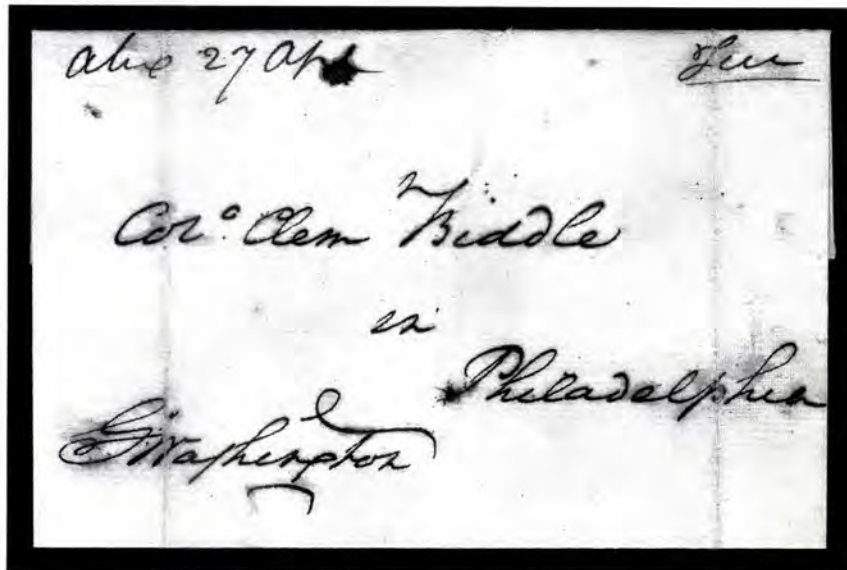 Alex 27 Apl Free
Colo. Clem Biddle
in
Philadelphia
GWashington